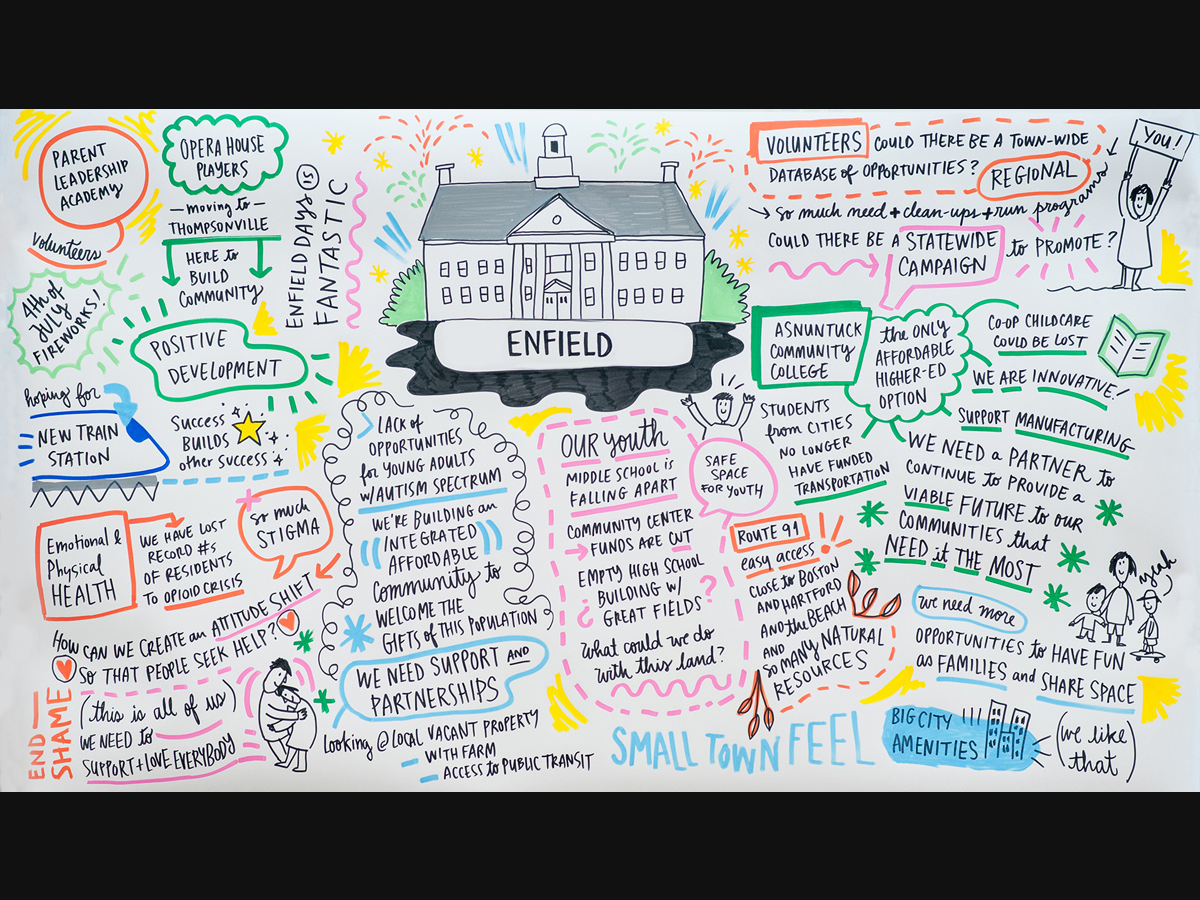 PARENT
LEADERSHIP
ACADEMY
Volunteers
OPERA HOUSE
PLAYERS
— moving to —
THOMPSONVILLE
HERE to
BUILD
COMMUNITY
ENFIELD DAYS IS
FANTASTIC
4TH of
JULY
FIREWORKS!
POSITIVE
DEVELOPMENT
hoping for
NEW TRAIN
STATION
Success
BUILDS
other success
Emotional &
Physical
HEALTH
WE HAVE LOST
RECORD #S
OF RESIDENTS
TO OPIOID CRISIS
So much
STIGMA
HOW CAN WE CREATE an ATTITUDE SHIFT
SO THAT PEOPLE SEEK HELP?
END
SHAME
(this is all of us)
WE NEED to
SUPPORT + LOVE EVERYBODY
ENFIELD
LACK of
OPPORTUNITIES
for YOUNG ADULTS
W/AUTISM SPECTRUM
WE'RE BUILDING an
INTEGRATED
AFFORDABLE
Community to
WELCOME THE
GIFTS of THIS POPULATION
WE NEED SUPPORT AND
PARTNERSHIPS
Looking @ LOCAL VACANT PROPERTY
WITH FARM
ACCESS to PUBLIC TRANSIT
OUR youth
MIDDLE SCHOOL is
FALLING APART
COMMUNITY CENTER
FUNDS ARE CUT
EMPTY HIGH SCHOOL
BUILDING W/
¿ GREAT FIELDS?
What could we do
with this land?
SAFE
SPACE
FOR YOUTH
ROUTE 91
easy access!
CLOSE to BOSTON
AND HARTFORD
AND the BEACH
AND
SO MANY NATURAL
RESOURCES
SMALL TOWN FEEL
VOLUNTEERS COULD THERE BE A TOWN-WIDE
DATABASE of OPPORTUNITIES? REGIONAL
→ so much need + clean-ups + run programs
YOU!
COULD THERE BE A STATEWIDE
CAMPAIGN to PROMOTE?
ASNUNTUCK
COMMUNITY
COLLEGE
the ONLY
AFFORDABLE
HIGHER-ED
OPTION
CO-OP CHILDCARE
COULD BE LOST
WE ARE INNOVATIVE!
SUPPORT MANUFACTURING
STUDENTS
from CITIES
NO LONGER
HAVE FUNDED
TRANSPORTATION
WE NEED a PARTNER to
CONTINUE to PROVIDE a
VIABLE FUTURE to our
COMMUNITIES that
NEED it THE MOST
yeah
we need more
OPPORTUNITIES to HAVE FUN
as FAMILIES and SHARE SPACE
BIG CITY
AMENITIES
(we like
that)